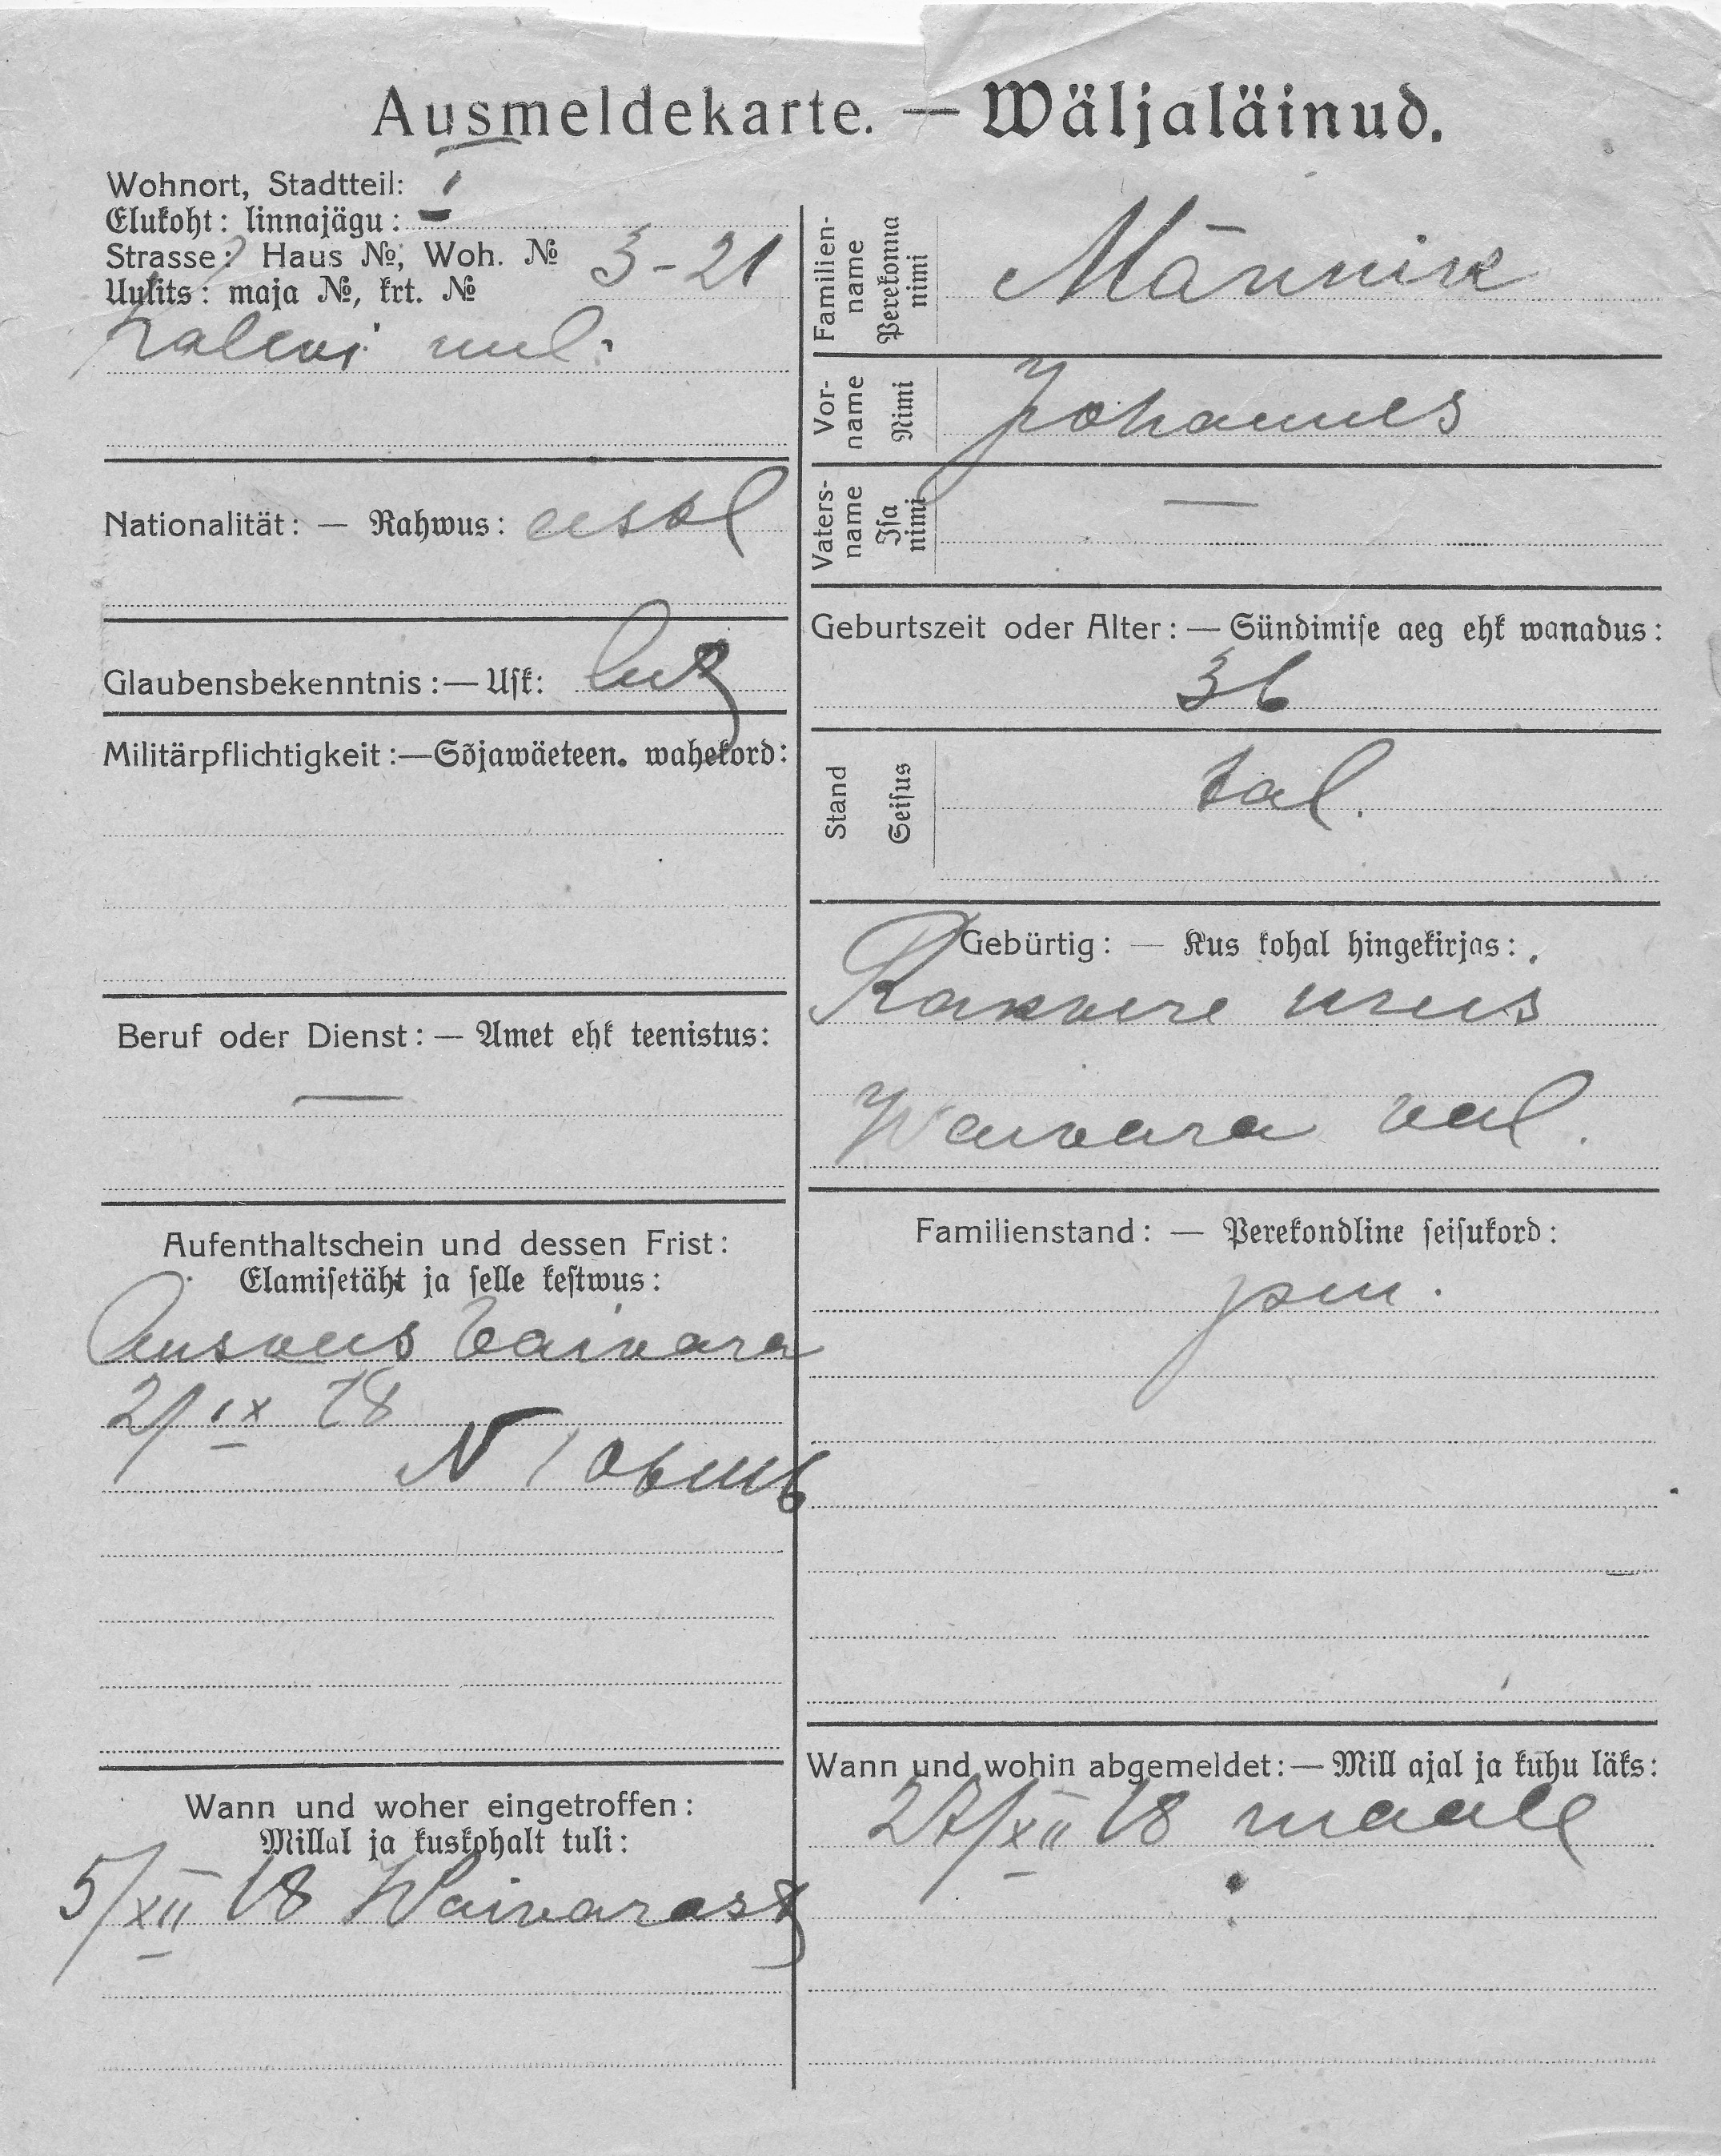 Ausmeldekarte. — Wäljaläinud.
Wohnort, Stadtteil: I
Elukoht: linnajägu:
Strasse: Haus №, Woh. № 3-21
Uulits: maja №, krt. №
Kalevi uul.
Nationalität: — Rahwus: eestl
Glaubensbekenntnis: — Usk: lut
Militärpflichtigkeit: — Sõjawäeteen. wahekord:
Beruf oder Dienst: — Amet ehk teenistus:
—
Aufenthaltschein und dessen Frist:
Elamisetäht ja selle kestwus:
Vaivara
2/IX 18
N 1
Wann und woher eingetroffen:
Millal ja kuskohalt tuli:
5/XII 18 Waivarast
Familien-name Perekonna nimi Männik
Vor-name Nimi Johannes
Vaters-name Isa nimi —
Geburtszeit oder Alter: — Sündimise aeg ehk wanadus:
36
Stand Seisus tal.
Gebürtig: — Kus kohal hingekirjas:
Rakvere kreis
Waivara val.
Familienstand: — Perekondline seisukord:
Wann und wohin abgemeldet: — Mill ajal ja kuhu läks:
27/XII 18 maale